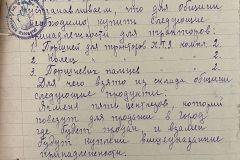 устанавливаем, что для общины
необходимо купить следующие
принадлежности для тракторов:
1. Поршней для тракторов ХТЗ компл. 2
2. Колец " " " 2
3. Поршневых пальцев " 2
Для чего взято из склада общины
следующие продукты:
Ячменя пять центнеров, который
повезут для продажи в город
где будет продан и взамен
будут куплены вышеуказанные
принадлежности.